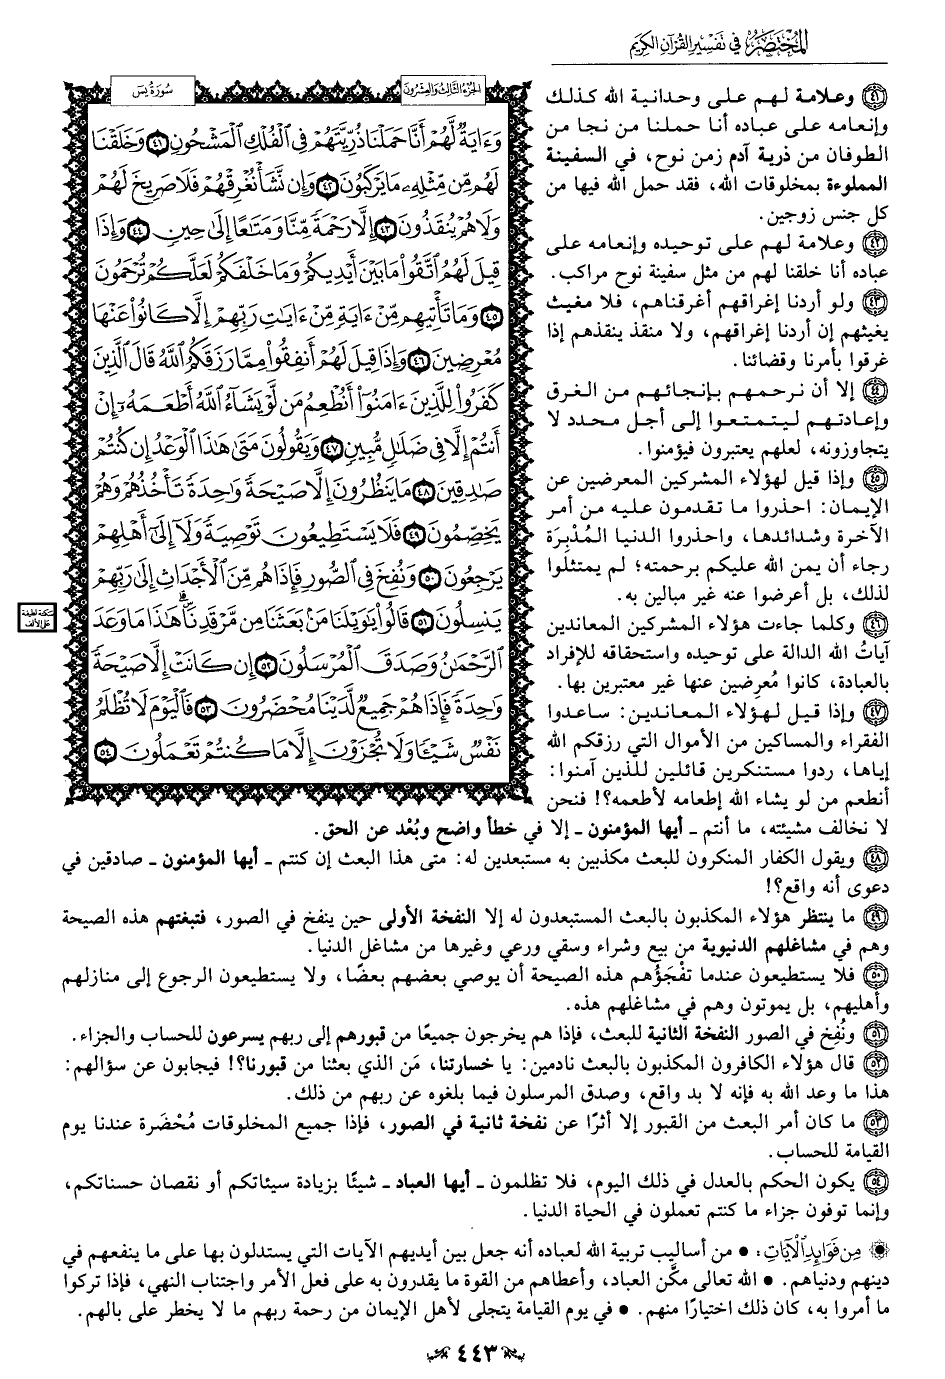 المختصر في تفسير القرآن الكريم
الجزء الثالث والعشرون
سورة يس
وَءَايَةٞ لَّهُمۡ أَنَّا حَمَلۡنَا ذُرِّيَّتَهُمۡ فِي ٱلۡفُلۡكِ ٱلۡمَشۡحُونِ ٤١ وَخَلَقۡنَا
لَهُم مِّن مِّثۡلِهِۦ مَا يَرۡكَبُونَ ٤٢ وَإِن نَّشَأۡ نُغۡرِقۡهُمۡ فَلَا صَرِيخَ لَهُمۡ
وَلَا هُمۡ يُنقَذُونَ ٤٣ إِلَّا رَحۡمَةٗ مِّنَّا وَمَتَٰعًا إِلَىٰ حِينٖ ٤٤ وَإِذَا
قِيلَ لَهُمُ ٱتَّقُواْ مَا بَيۡنَ أَيۡدِيكُمۡ وَمَا خَلۡفَكُمۡ لَعَلَّكُمۡ تُرۡحَمُونَ
٤٥ وَمَا تَأۡتِيهِم مِّنۡ ءَايَةٖ مِّنۡ ءَايَٰتِ رَبِّهِمۡ إِلَّا كَانُواْ عَنۡهَا
مُعۡرِضِينَ ٤٦ وَإِذَا قِيلَ لَهُمۡ أَنفِقُواْ مِمَّا رَزَقَكُمُ ٱللَّهُ قَالَ ٱلَّذِينَ
كَفَرُواْ لِلَّذِينَ ءَامَنُوٓاْ أَنُطۡعِمُ مَن لَّوۡ يَشَآءُ ٱللَّهُ أَطۡعَمَهُۥٓ إِنۡ
أَنتُمۡ إِلَّا فِي ضَلَٰلٖ مُّبِينٖ ٤٧ وَيَقُولُونَ مَتَىٰ هَٰذَا ٱلۡوَعۡدُ إِن كُنتُمۡ
صَٰدِقِينَ ٤٨ مَا يَنظُرُونَ إِلَّا صَيۡحَةٗ وَٰحِدَةٗ تَأۡخُذُهُمۡ وَهُمۡ
يَخِصِّمُونَ ٤٩ فَلَا يَسۡتَطِيعُونَ تَوۡصِيَةٗ وَلَآ إِلَىٰٓ أَهۡلِهِمۡ
يَرۡجِعُونَ ٥٠ وَنُفِخَ فِي ٱلصُّورِ فَإِذَا هُم مِّنَ ٱلۡأَجۡدَاثِ إِلَىٰ رَبِّهِمۡ
يَنسِلُونَ ٥١ قَالُواْ يَٰوَيۡلَنَا مَنۢ بَعَثَنَا مِن مَّرۡقَدِنَاۜۗ هَٰذَا مَا وَعَدَ
ٱلرَّحۡمَٰنُ وَصَدَقَ ٱلۡمُرۡسَلُونَ ٥٢ إِن كَانَتۡ إِلَّا صَيۡحَةٗ
وَٰحِدَةٗ فَإِذَا هُمۡ جَمِيعٞ لَّدَيۡنَا مُحۡضَرُونَ ٥٣ فَٱلۡيَوۡمَ لَا تُظۡلَمُ
نَفۡسٞ شَيۡـٔٗا وَلَا تُجۡزَوۡنَ إِلَّا مَا كُنتُمۡ تَعۡمَلُونَ ٥٤
سكتة لطيفة
على الألف
٤١ وعلامة لهم على وحدانية الله كذلك
وإنعامه على عباده أنا حملنا من نجا من
الطوفان من ذرية آدم زمن نوح، في السفينة
المملوءة بمخلوقات الله، فقد حمل الله فيها من
كل جنس زوجين.
٤٢ وعلامة لهم على توحيده وإنعامه على
عباده أنا خلقنا لهم من مثل سفينة نوح مراكب.
٤٣ ولو أردنا إغراقهم أغرقناهم، فلا مغيث
يغيثهم إن أردنا إغراقهم، ولا منقذ ينقذهم إذا
غرقوا بأمرنا وقضائنا.
٤٤ إلا أن نرحمهم بإنجائهم من الغرق
وإعادتهم ليتمتعوا إلى أجل محدد لا
يتجاوزونه، لعلهم يعتبرون فيؤمنوا.
٤٥ وإذا قيل لهؤلاء المشركين المعرضين عن
الإيمان: احذروا ما تقدمون عليه من أمر
الآخرة وشدائدها، واحذروا الدنيا المُدْبِرَة
رجاء أن يمن الله عليكم برحمته؛ لم يمتثلوا
لذلك، بل أعرضوا عنه غير مبالين به.
٤٦ وكلما جاءت هؤلاء المشركين المعاندين
آياتُ الله الدالة على توحيده واستحقاقه للإفراد
بالعبادة، كانوا مُعرِضين عنها غير معتبرين بها.
٤٧ وإذا قيل لهؤلاء المعاندين: ساعدوا
الفقراء والمساكين من الأموال التي رزقكم الله
إياها، ردوا مستنكرين قائلين للذين آمنوا:
أنطعم من لو يشاء الله إطعامه لأطعمه؟! فنحن
لا نخالف مشيئته، ما أنتم ـ أيها المؤمنون ـ إلا في خطأ واضح وبُعْد عن الحق.
٤٨ ويقول الكفار المنكرون للبعث مكذبين به مستبعدين له: متى هذا البعث إن كنتم ـ أيها المؤمنون ـ صادقين في
دعوى أنه واقع؟!
٤٩ ما ينتظر هؤلاء المكذبون بالبعث المستبعدون له إلا النفخة الأولى حين ينفخ في الصور، فتبغتهم هذه الصيحة
وهم في مشاغلهم الدنيوية من بيع وشراء وسقي ورعي وغيرها من مشاغل الدنيا.
٥٠ فلا يستطيعون عندما تفْجَؤُهم هذه الصيحة أن يوصي بعضهم بعضًا، ولا يستطيعون الرجوع إلى منازلهم
وأهليهم، بل يموتون وهم في مشاغلهم هذه.
٥١ ونُفِخ في الصور النفخة الثانية للبعث، فإذا هم يخرجون جميعًا من قبورهم إلى ربهم يسرعون للحساب والجزاء.
٥٢ قال هؤلاء الكافرون المكذبون بالبعث نادمين: يا خسارتنا، مَن الذي بعثنا من قبورنا؟! فيجابون عن سؤالهم:
هذا ما وعد الله به فإنه لا بد واقع، وصدق المرسلون فيما بلغوه عن ربهم من ذلك.
٥٣ ما كان أمر البعث من القبور إلا أثرًا عن نفخة ثانية في الصور، فإذا جميع المخلوقات مُحْضَرة عندنا يوم
القيامة للحساب.
٥٤ يكون الحكم بالعدل في ذلك اليوم، فلا تظلمون ـ أيها العباد ـ شيئًا بزيادة سيئاتكم أو نقصان حسناتكم،
وإنما توفون جزاء ما كنتم تعملون في الحياة الدنيا.
من فوائد الآيات: • من أساليب تربية الله لعباده أنه جعل بين أيديهم الآيات التي يستدلون بها على ما ينفعهم في
دينهم ودنياهم. • الله تعالى مكَّن العباد، وأعطاهم من القوة ما يقدرون به على فعل الأمر واجتناب النهي، فإذا تركوا
ما أمروا به، كان ذلك اختيارًا منهم. • في يوم القيامة يتجلى لأهل الإيمان من رحمة ربهم ما لا يخطر على بالهم.
٤٤٣